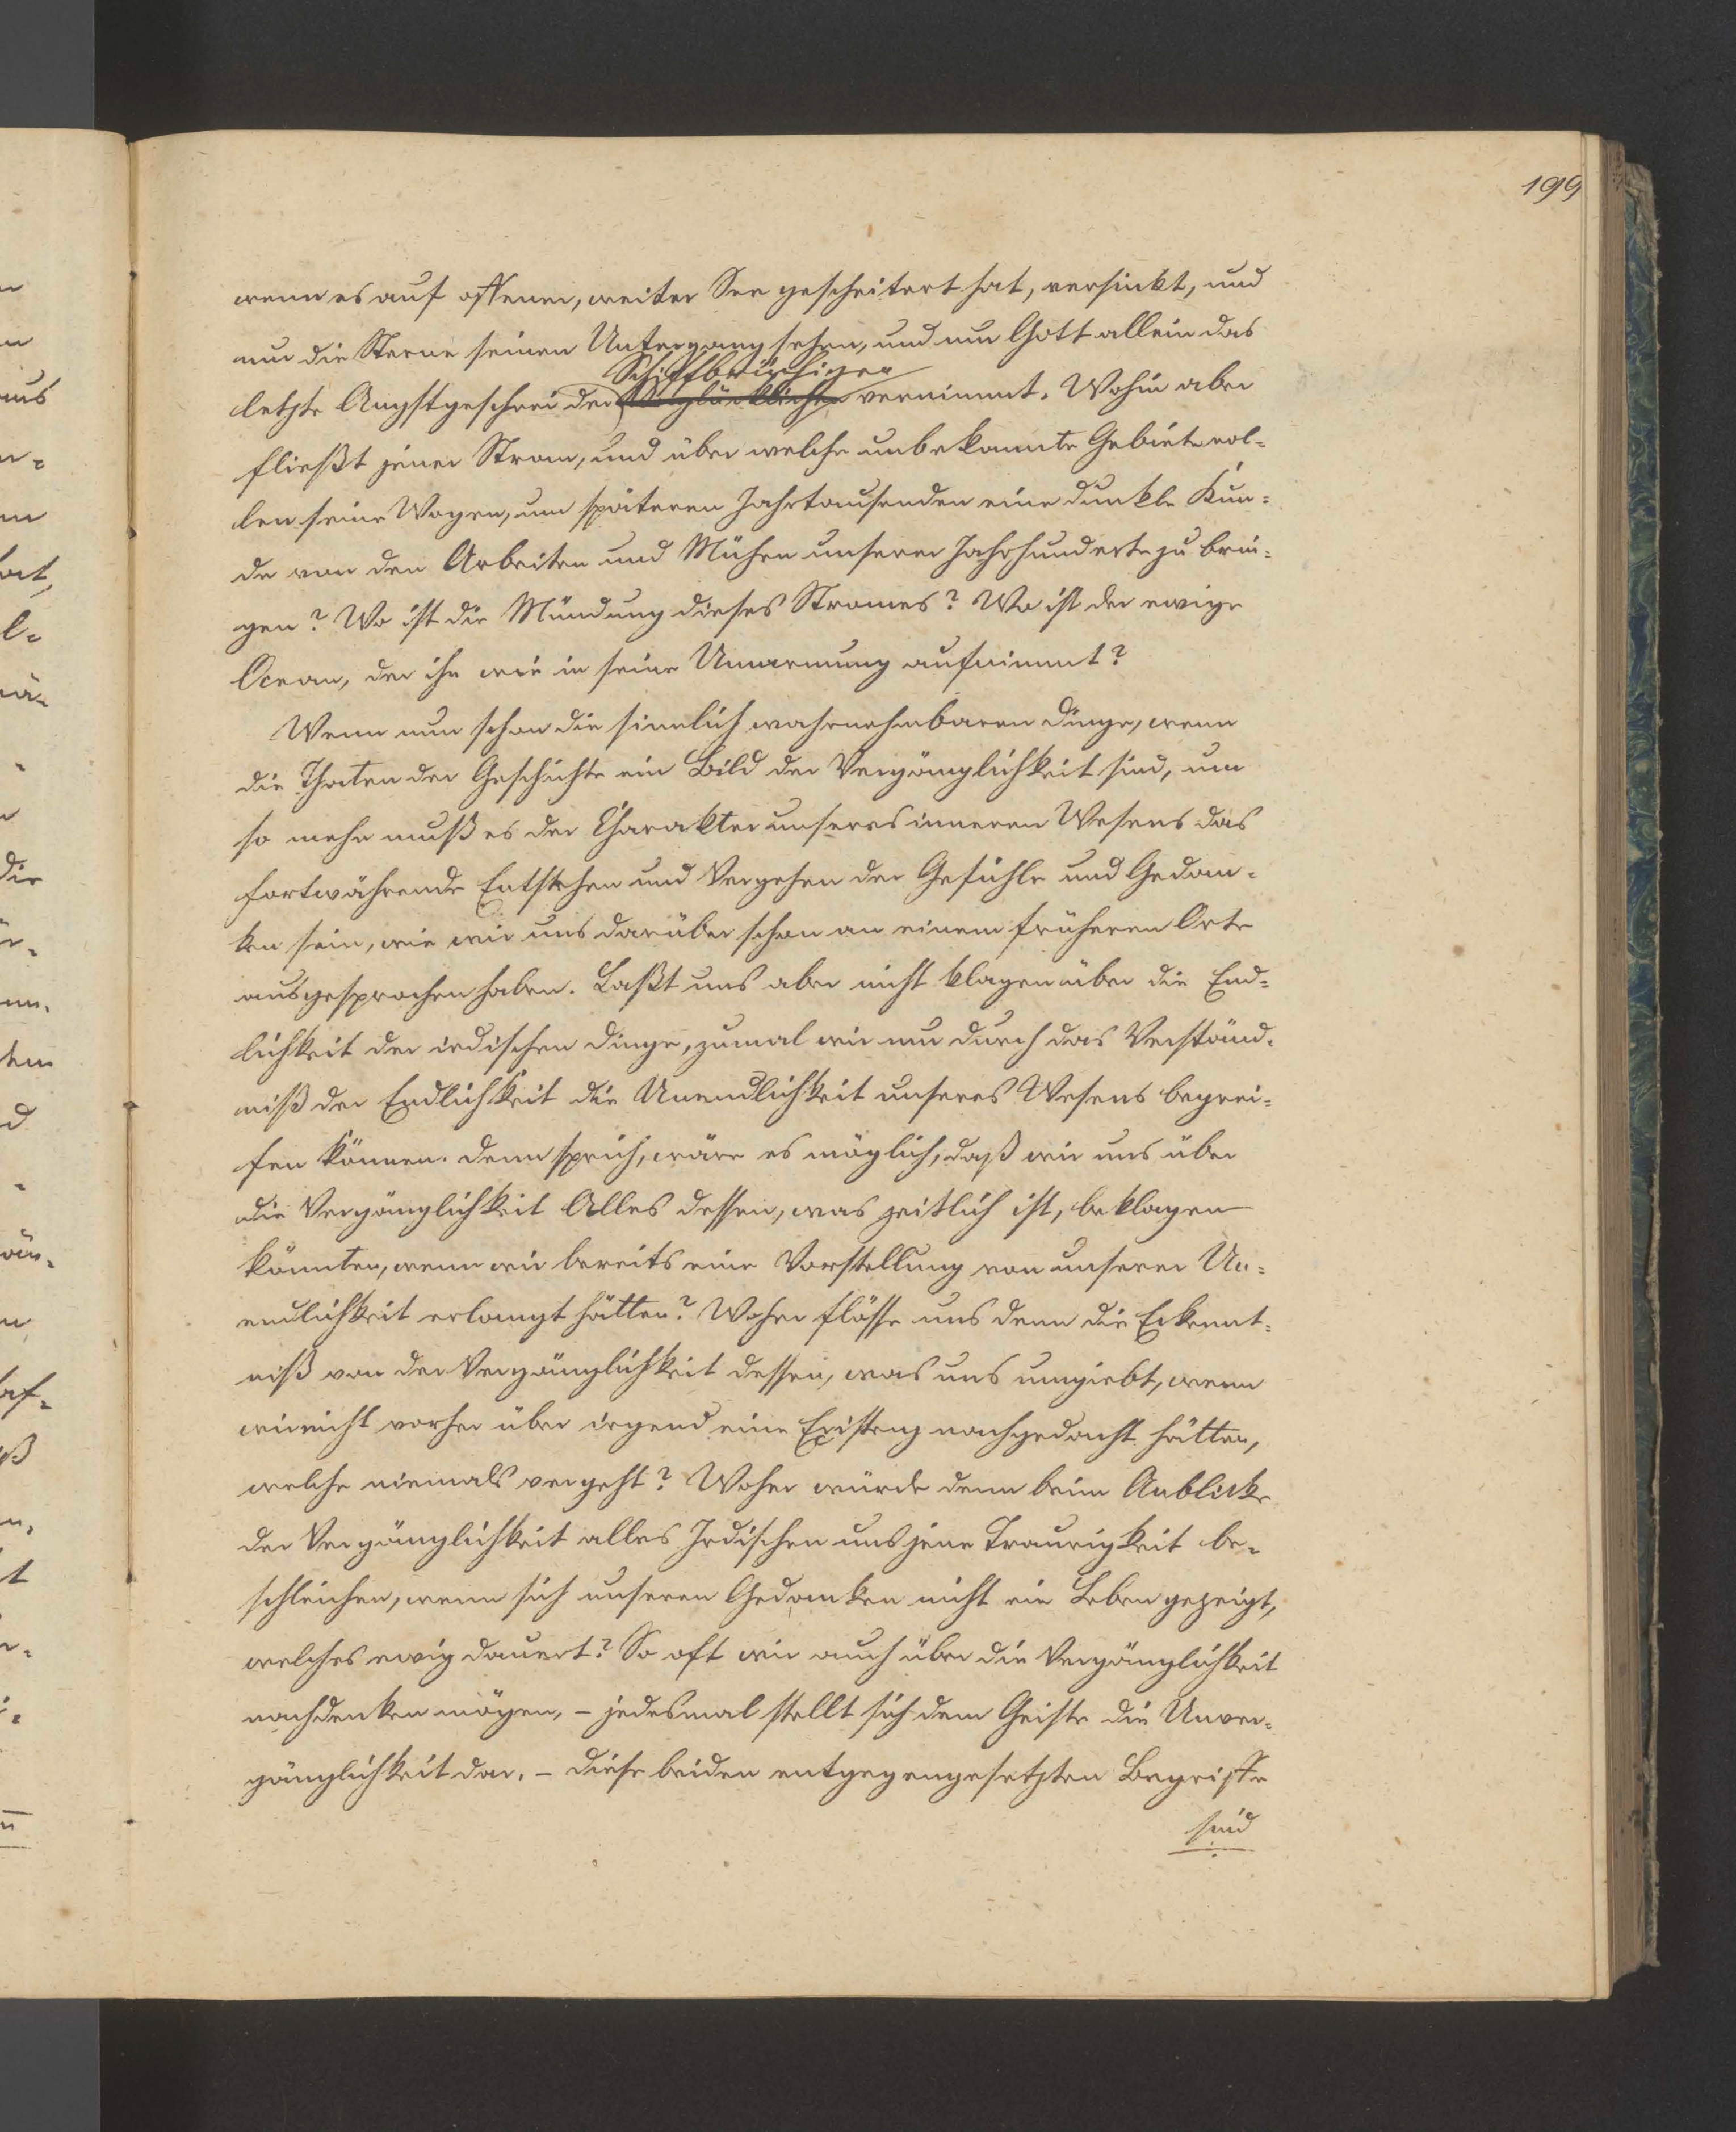 199
wenn es auf offener, weiter See gescheitert hat, versinkt, und
nur die Sterne seinen Untergang sehen, und nur Gott allein das
Schiffbrüchigen
letzte Angstgeschrei der Unglücklichen vernimmt. Wohin aber
fließt jener Strom, und über welche unbekannte Gebiete rol-
len seine Wogen, um späteren Jahrtausenden eine dunkle Kun-
de von den Arbeiten und Mühen unserer Jahrhunderte zu brin-
gen? Wo ist die Mündung dieses Stromes? Wo ist der ewige
Ocean, der ihn wie in seine Umarmung aufnimmt?
Wenn nun schon die sinnlich wahrnehmbaren Dinge, wenn
die Thaten der Geschichte ein Bild der Vergänglichkeit sind, um
so mehr muß es der Charakter unseres inneren Wesens das
fortwährende Entstehen und Vergehen der Gefühle und Gedan-
ken sein, wie wir uns darüber schon an einem früheren Orte
ausgesprochen haben. Laßt uns aber nicht klagen über die End-
lichkeit der irdischen Dinge, zumal wir nur durch das Verständ-
niß der Endlichkeit die Unendlichkeit unseres Wesens begrei-
fen können. Denn sprich, wäre es möglich, daß wir uns über
die Vergänglichkeit Alles dessen, was zeitlich ist, beklagen
könnten, wenn wir bereits eine Vorstellung von unserer Un-
endlichkeit erlangt hätten? Woher flösse uns denn die Erkennt-
niß von der Vergänglichkeit dessen, was uns umgiebt, wenn
wir nicht vorher über irgend eine Existenz nachgedacht hätten,
welche niemals vergeht? Woher würde denn beim Anblicke
der Vergänglichkeit alles Irdischen uns jene Traurigkeit be-
schleichen, wenn sich unseren Gedanken nicht ein Leben gezeigt,
welches ewig dauert? So oft wir auch über die Vergänglichkeit
nachdenken mögen, – jedesmal stellt sich dem Geiste die Unver-
gänglichkeit dar. – Diese beiden entgegengesetzten Begriffe
sind